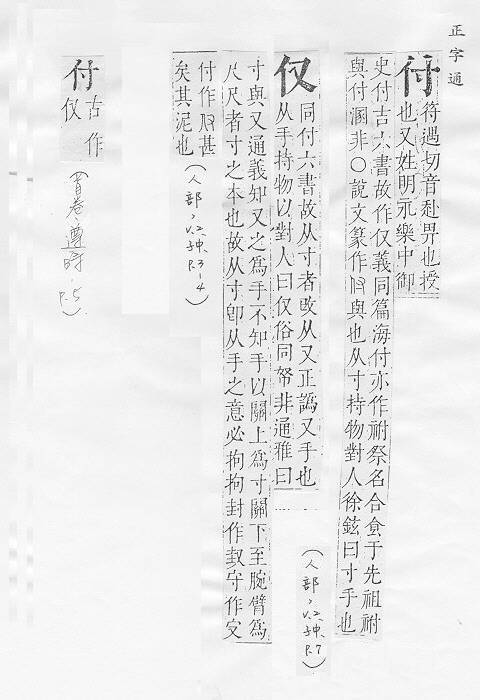 正字通
付
符遇切音赴畀也授
也又姓明永樂中御
史付吉六書故作仅義同篇海付亦作祔祭名合食于先祖祔
與付溷非〇說文篆作㕛與也从寸持物對人徐鉉曰寸手也
(人部,
P.7)
仅
同付六書故从寸者或从又正譌又手也
从手持物以對人曰仅俗同奴非通雅曰
寸與又通義知又之爲手不知手以關上爲寸關下至腕臂爲
尺尺者寸之本也故从寸卽从手之意必拘拘封作 守作
付作 甚
矣其泥也
(人部,
P.3-4)
付
古作
仅
(首卷,遵時,
P.5)